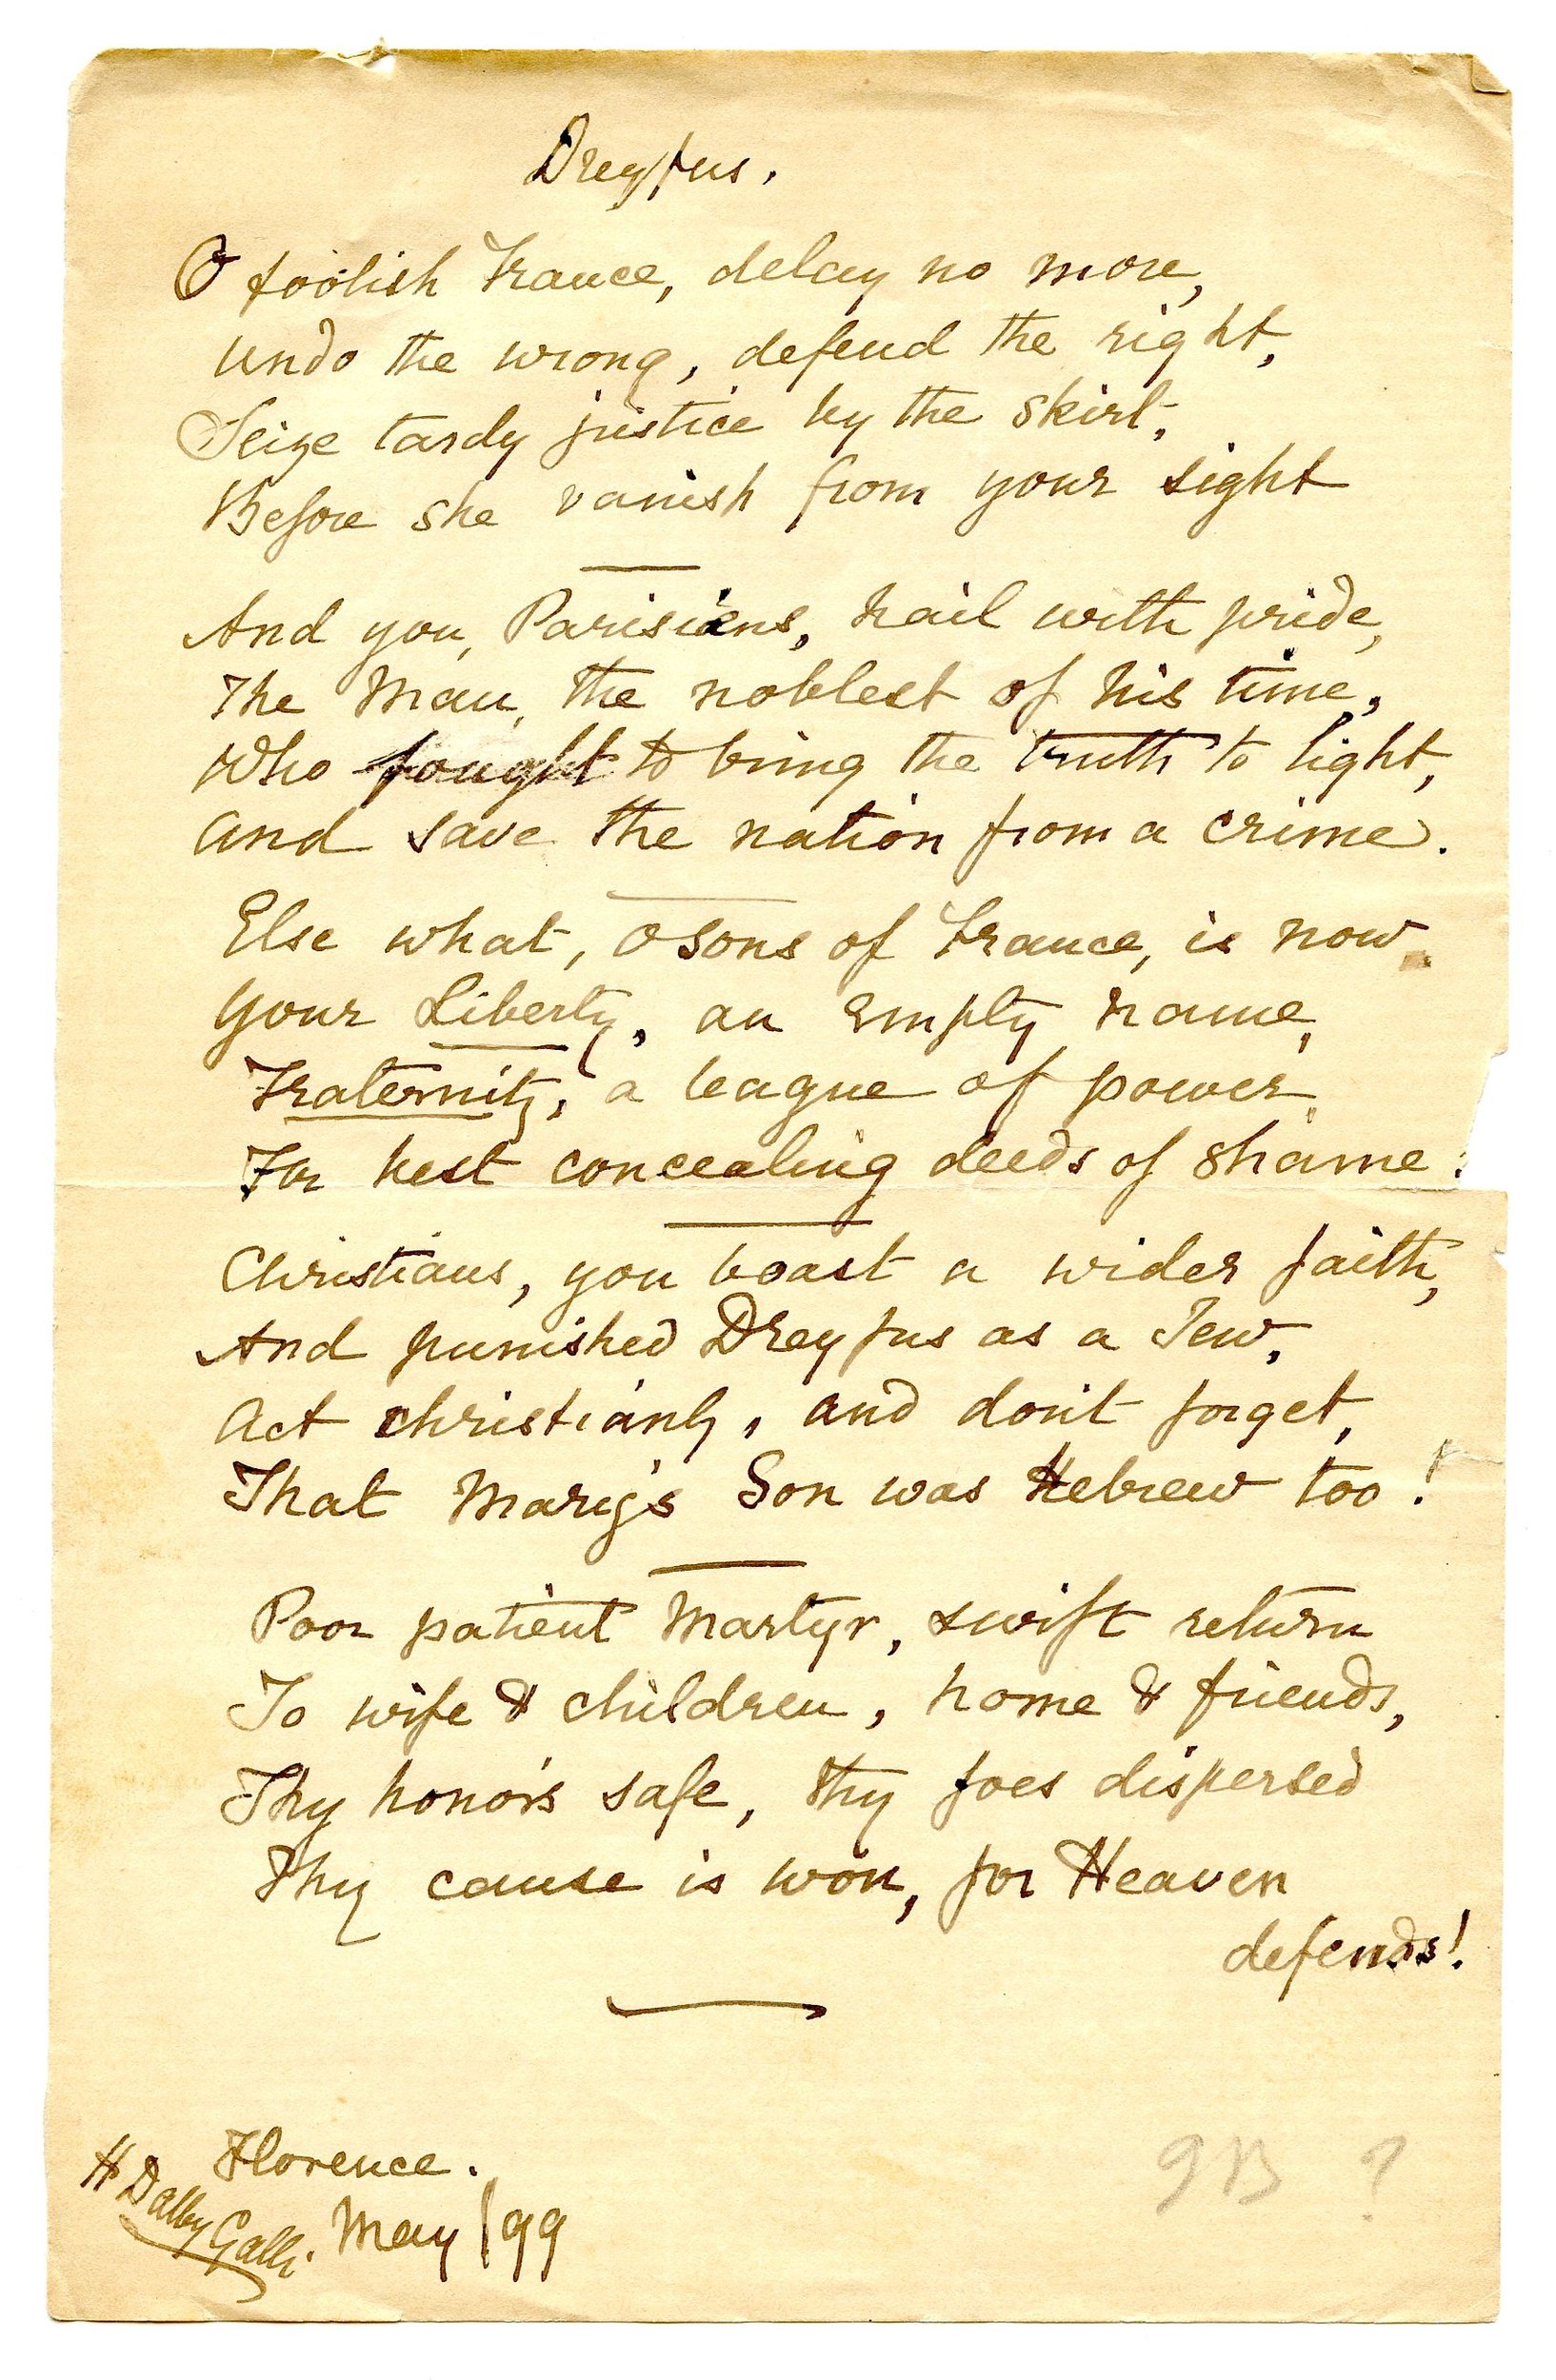 Dreyfus.
O foolish France, delay no more,
Undo the wrong, defend the right,
Seize tardy justice by the skirt,
Before she vanish from your sight
And you, Parisians, hail with pride,
The Man, the noblest of his time,
Who fought to bring the truth to light,
And save the nation from a crime.
Else what, O sons of France, is now
Your Liberty, an empty name,
Fraternity, a league of power,
For best concealing deeds of shame:
Christians, you boast a wider faith,
And punished Dreyfus as a Jew,
Act christianly, and don't forget,
That Mary's Son was Hebrew too!
Poor patient Martyr, swift return
To wife & children, home & friends,
Thy honor's safe, thy foes dispersed
Thy cause is won, for Heaven
defends!
Florence.
H Dalby Galli.
May /99
GB ?